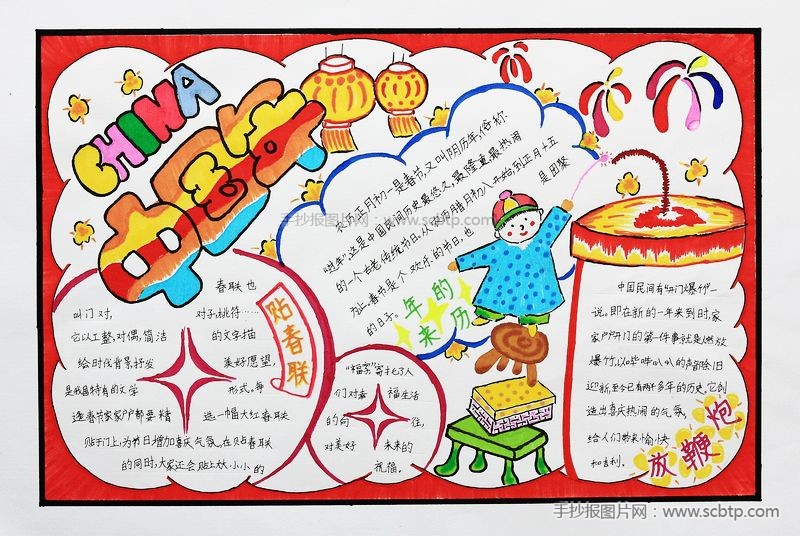 CHINA
中国年
农历正月初一是春节,又叫阴历年,俗称
"过年"。这是中国民间历史最悠久、最隆重、最热闹
的一个古老传统节日。从农历腊月初八开始,到正月十五
为止。春节是个欢乐的节日,也
是团聚
的日子。
年的
来历
手抄报图片网 www.scbtp.com
春联也
叫门对,
对子,桃符……
它以工整、对偶,简洁
的文字描
绘时代背景,抒发
美好愿望,
是我国特有的文学
形式。每
逢春节家家户户都要精
选一幅大红春联
贴于门上,为节日增加喜庆气氛。在贴春联
的同时,大家还会贴上大小小的
贴春联
"福字"寄托了人
们对幸
福生活
的向
往,
对美好
未来的
祝福。
中国民间有"开门爆竹"一
说。即在新的一年来到时,家
家户户开门的第一件事就是燃放
爆竹,以哔哔叭叭的声音除旧
迎新,至今已有两千多年的历史。它创
造出喜庆热闹的气氛,
给人们带来愉快
和吉利。
放鞭炮
手抄报图片网:www.scbtp.com